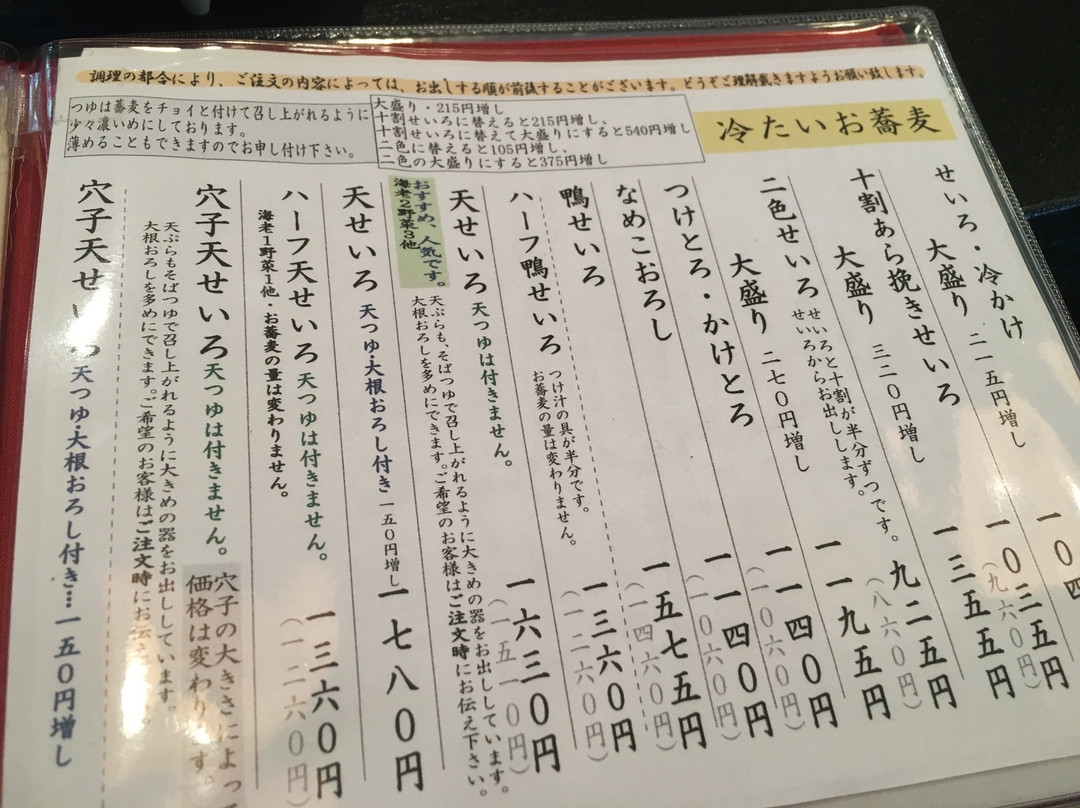 調理の都合により、ご注文の内容によっては、お出しする順が前後することがございます。どうぞご理解戴きますようお願い致します。
つゆは蕎麦をチョイと付けて召し上がれるように
少々濃いめにしております。
薄めることもできますのでお申し付け下さい。
大盛り・215円増し
十割せいろに替えると215円増し、
十割せいろに替えて大盛りにすると540円増し
二色に替えると105円増し、
二色の大盛りにすると375円増し
冷たいお蕎麦
せいろ・冷かけ
大盛り 二一五円増し 一0四
十割あら挽きせいろ 一0三五円
(九六0円)
大盛り 三二0円増し 一三五五円
二色せいろ せいろと十割が半分ずつです。
せいろからお出しします。
九二五円
(八六0円)
大盛り 二七0円増し 一一九五円
つけとろ・かけとろ 一一四0円
(一0六0円)
なめこおろし 一一四0円
(一0六0円)
鴨せいろ 一五七五円
(一四六0円)
ハーフ鴨せいろ つけ汁の具が半分です。
お蕎麦の量は変わりません。
一三六0円
(一二六0円)
天せいろ 天つゆは付きません。 一六三0円
(一五一0円)
おすすめ、人気です。
海老2野菜3他
天ぷらも、そばつゆで召し上がれるように大きめの器をお出ししています。
大根おろしを多めにできます。ご希望のお客様はご注文時にお伝え下さい。
天せいろ 天つゆ・大根おろし付き 一五0円増し 一七八0円
ハーフ天せいろ 天つゆは付きません。 一三六0円
(一二六0円)
海老1野菜1他・お蕎麦の量は変わりません。
穴子天せいろ 天つゆは付きません。
穴子の大きさによっ
価格は変わります。
天ぷらもそばつゆで召し上がれるように大きめの器をお出ししています。
大根おろしを多めにできます。ご希望のお客様はご注文時にお伝え
穴子天せいろ 天つゆ・大根おろし付き…一五0円増し